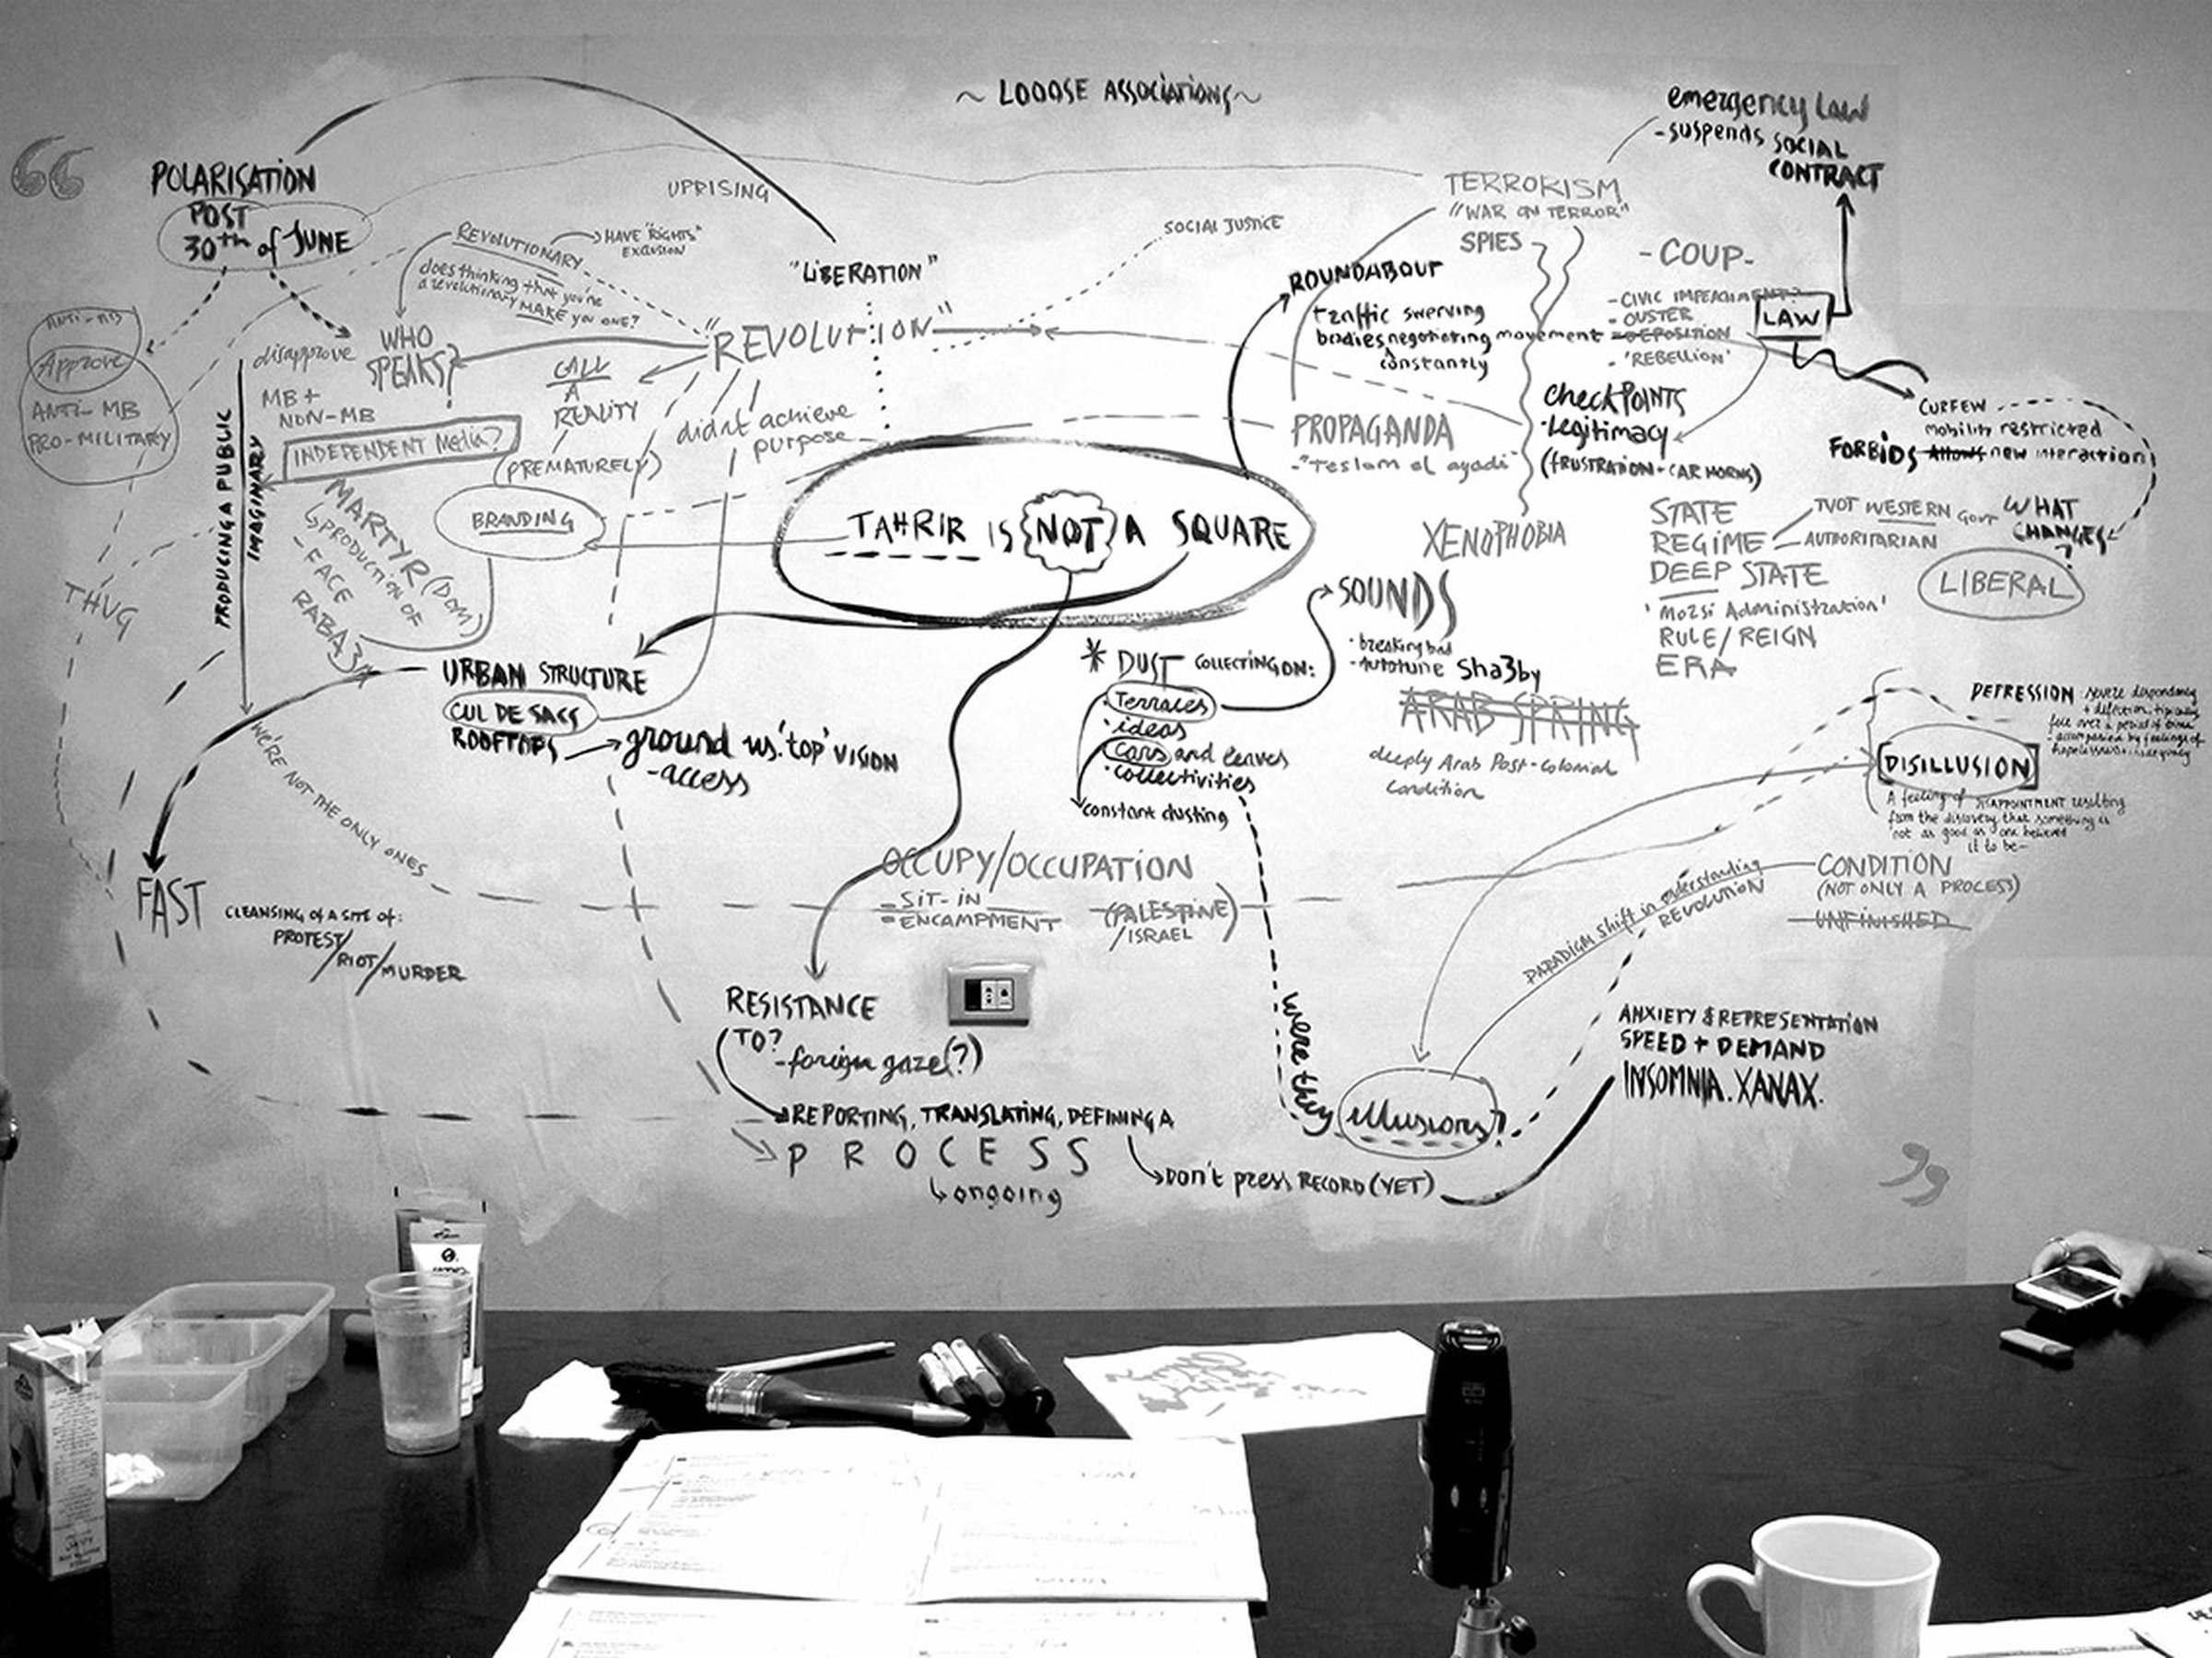 ~ LOOOSE ASSOCIATIONS ~
emergency law
- suspends SOCIAL
CONTRACT
POLARISATION
POST
30th of JUNE
UPRISING
TERRORISM
"WAR ON TERROR"
SPIES
REVOLUTIONARY
HAVE "RIGHTS"
EXCLUSION
does thinking that you're
a revolutionary MAKE you ONE?
SOCIAL JUSTICE
"LIBERATION"
"REVOLUTION"
ROUNDABOUT
traffic swerving
bodies negotiating movement
constantly
- COUP -
- CIVIC IMPEACHMENT?
- OUSTER
- DEPOSITION
- 'REBELLION'
LAW
ANTI-MB
Approve
ANTI-MB
PRO-MILITARY
disapprove
MB +
NON-MB
WHO
SPEAKS?
INDEPENDENT Media?
CALL
A
REALITY
(PREMATURELY)
didn't achieve
purpose
BRANDING
PRODUCING A PUBLIC
IMAGINARY
MARTYR (DOM)
PRODUCTION OF
- FACE
RABA3A
THUG
TAHRIR IS NOT A SQUARE
PROPAGANDA
- "Teslam al ayadi"
CheckPOINTS
- Legitimacy
(FRUSTRATION - CAR HORNS)
CURFEW
Mobility restricted
FORBIDS Allows new interaction
WHAT
CHANGES?
XENOPHOBIA
STATE
REGIME
DEEP STATE
'Morsi Administration'
RULE/REIGN
ERA
NOT WESTERN GOVT
AUTHORITARIAN
LIBERAL
SOUNDS
- breaking bad
- Autotune Sha3by
ARAB SPRING
deeply Arab Post-Colonial
condition
URBAN STRUCTURE
CUL DE SACS
ROOFTOPS
ground vs. 'top' VISION
- access
* DUST COLLECTING ON:
Terraces
· ideas
· Cars and leaves
· collectivities
constant dusting
WE'RE NOT THE ONLY ONES
FAST
CLEANSING OF A SITE OF:
PROTEST/
/RIOT/MURDER
OCCUPY/OCCUPATION
- SIT-IN
- ENCAMPMENT
(PALESTINE)
/ISRAEL
DEPRESSION severe despondency
+ dejection, typically
felt over a period of time
- accompanied by feelings of
hopelessness + inadequacy
DISILLUSION
A feeling of DISAPPOINTMENT resulting
from the discovery that something is
not as good as one believed
it to be -
CONDITION
(NOT ONLY A PROCESS)
UNFINISHED
PARADIGM shift in understanding
REVOLUTION
RESISTANCE
TO?
- foreign gaze (?)
REPORTING, TRANSLATING, DEFINING A
PROCESS
ongoing
DON'T press RECORD (YET)
were they
illusions?
ANXIETY & REPRESENTATION
SPEED + DEMAND
INSOMNIA. XANAX.